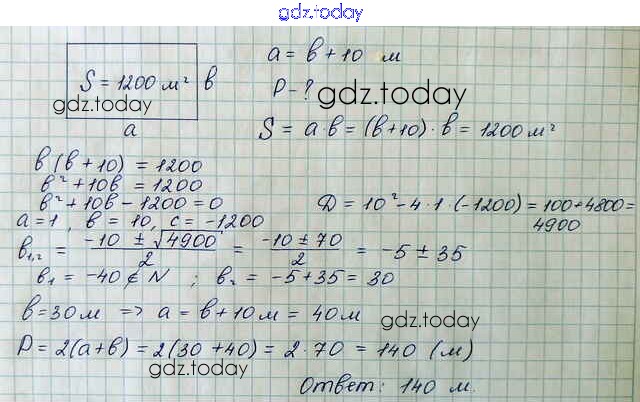 gdz.today
a = b + 10 м
S = 1200 м² b
P - ?
gdz.today
gdz.today
a
S = a·b = (b+10)·b = 1200 м²
b(b+10) = 1200
b² + 10b = 1200
b² + 10b - 1200 = 0
D = 10² - 4·1·(-1200) = 100 + 4800 =
4900
a = 1, b = 10, c = -1200
b₁,₂ = (-10 ± √4900)/2 = (-10 ± 70)/2 = -5 ± 35
b₁ = -40 ∉ N ; b₂ = -5 + 35 = 30
b = 30 м => a = b + 10 м = 40 м
gdz.today
P = 2(a+b) = 2(30 + 40) = 2·70 = 140 (м)
gdz.today
Ответ: 140 м.